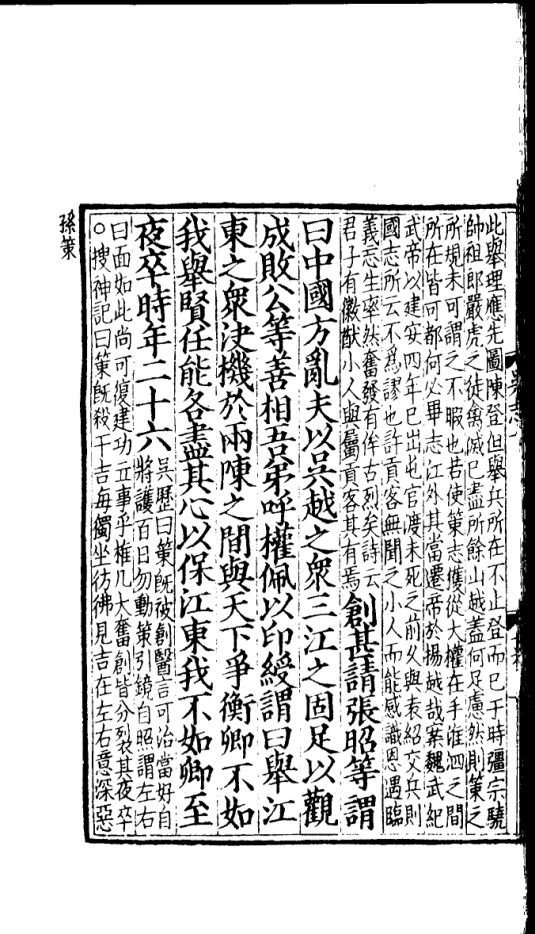 此舉理應先圖陳登但舉兵所在不止登而已于時彊宗驍
帥祖郎嚴虎之徒禽滅已盡所餘山越蓋何足慮然則策之
所規未可謂之不暇也若使策志獲從大權在手淮泗之間
所在皆可都何必畢志江外其當遷帝於揚越哉案魏武紀
武帝以建安四年已出屯官渡未死之前久與袁紹交兵則
國志所云不爲謬也許貢客無聞之小人而能感識恩遇臨
義忘生卒然奮發有侔古烈矣詩云
君子有徽猷小人與屬貢客其有焉
創甚請張昭等謂
曰中國方亂夫以吳越之衆三江之固足以觀
成敗公等善相吾弟呼權佩以印綬謂曰舉江
東之衆決機於兩陳之間與天下爭衡卿不如
我舉賢任能各盡其心以保江東我不如卿至
夜卒時年二十六
吳歷曰策旣被創醫言可治當好自
將護百日勿動策引鏡自照謂左右
曰面如此尚可復建功立事乎椎几大奮創皆分裂其夜卒
○搜神記曰策旣殺干吉每獨坐彷彿見吉在左右意深惡
孫策